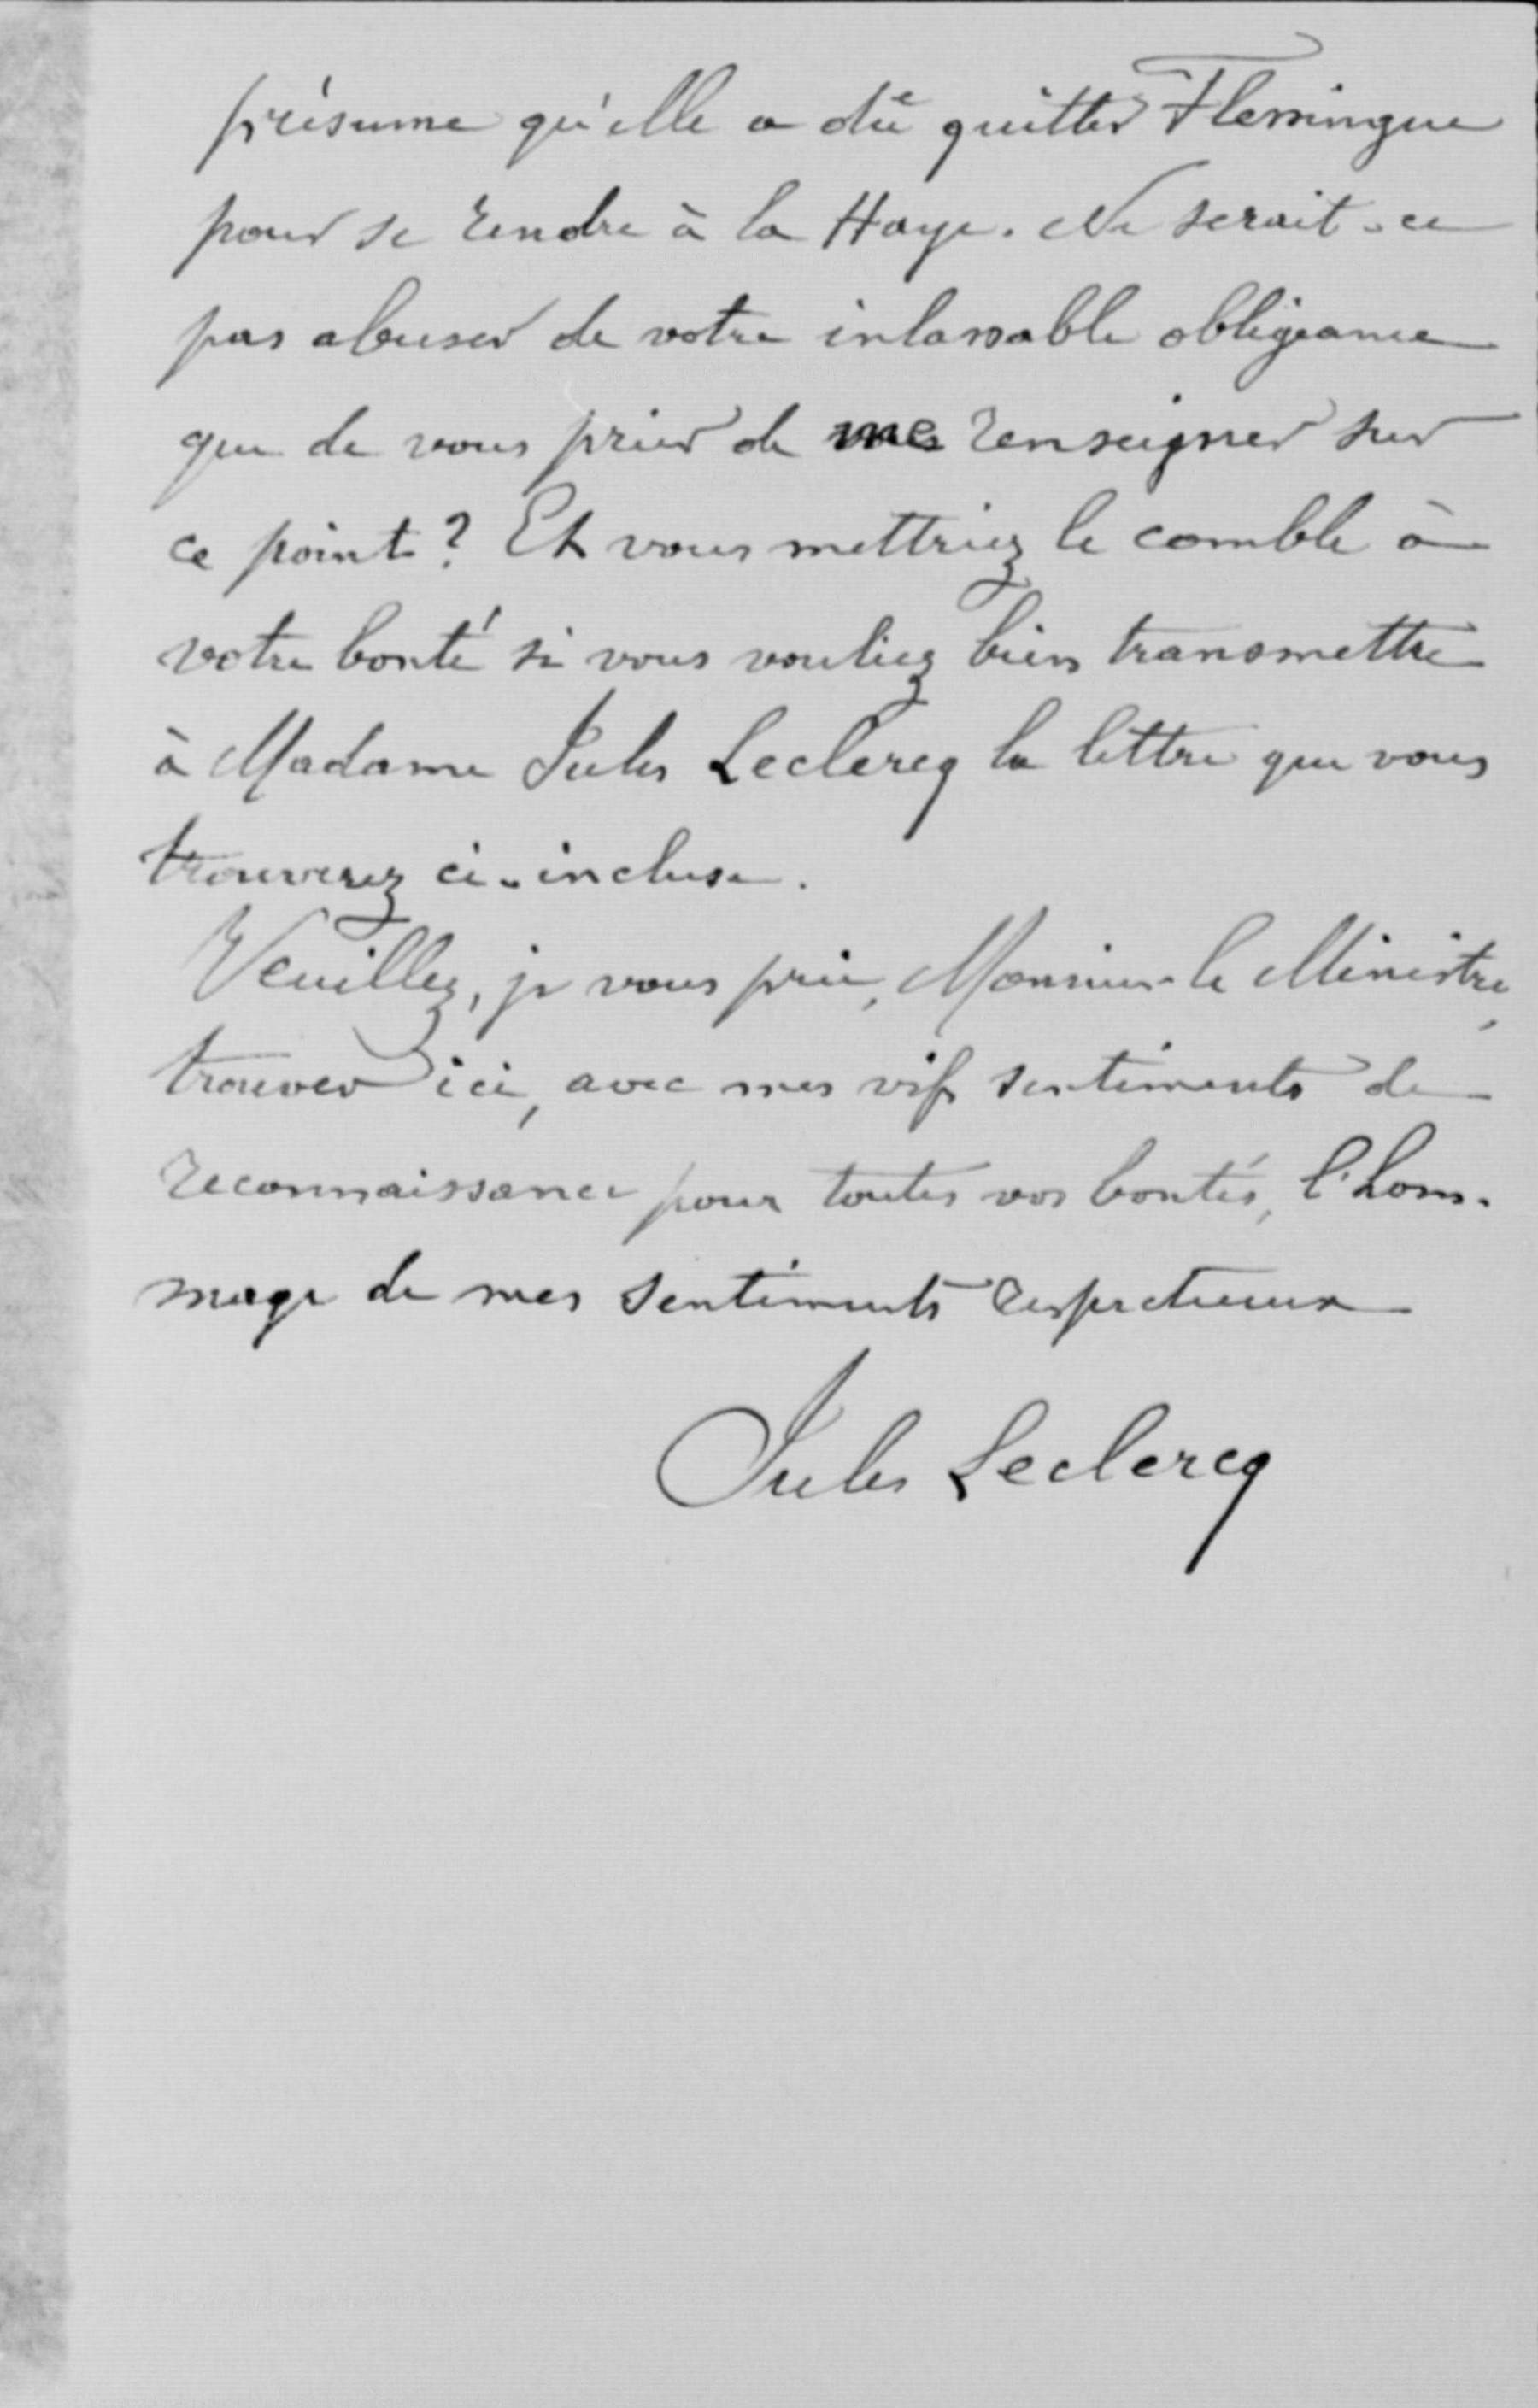 présume qu'elle a dû quitter Flessingue
pour se rendre à la Haye. Ne serait-ce
pas abuser de votre inlassable obligeance
que de vous prier de me renseigner sur
ce point ? Et vous mettriez le comble à
votre bonté si vous vouliez bien transmettre
à Madame Jules Leclercq la lettre que vous
trouverez ci-incluse.
Veuillez, je vous prie, Monsieur le Ministre,
trouver ici, avec mes vifs sentiments de
reconnaissance pour toutes vos bontés, l'hom-
mage de mes sentiments respectueux
Jules Leclercq